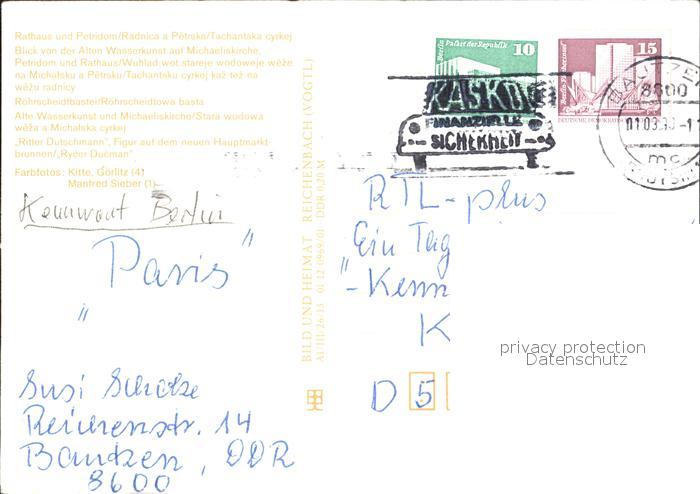 Rathaus und Petridom/Radnica a Pětrska/Tachantska cyrkej
Blick von der Alten Wasserkunst auf Michaeliskirche,
Petridom und Rathaus/Wuhlad wot stareje wodoweje wěže
na Michałsku a Pětrsku/Tachantsku cyrkej kaž tež na
wěžu radnicy
Röhrscheidtbastei/Röhrscheidtowa basta
Alte Wasserkunst und Michaeliskirche/Stara wodowa
wěža a Michałska cyrkej
„Ritter Dutschmann", Figur auf dem neuen Hauptmarkt-
brunnen/„Ryćer Dućman"
Farbfotos: Kitte, Görlitz (4)
Manfred Sieber (1)
Kennwort Berlin
"Paris"
Susi Scholze
Reichenstr. 14
Bautzen, DDR
8600
BILD UND HEIMAT REICHENBACH (VOGTL)
A1/III/26/13 01 12 0969/01 DDR 0,20 M
Berlin Palast der Republik 10
15
DEUTSCHE DEMOKRATISCHE
KASKO
FINANZIELLE
SICHERHEIT
BAUTZEN
8600
01.03.90-1
RTL-plus
„Ein Tag
-Kenn
K
D 5
privacy protection
Datenschutz